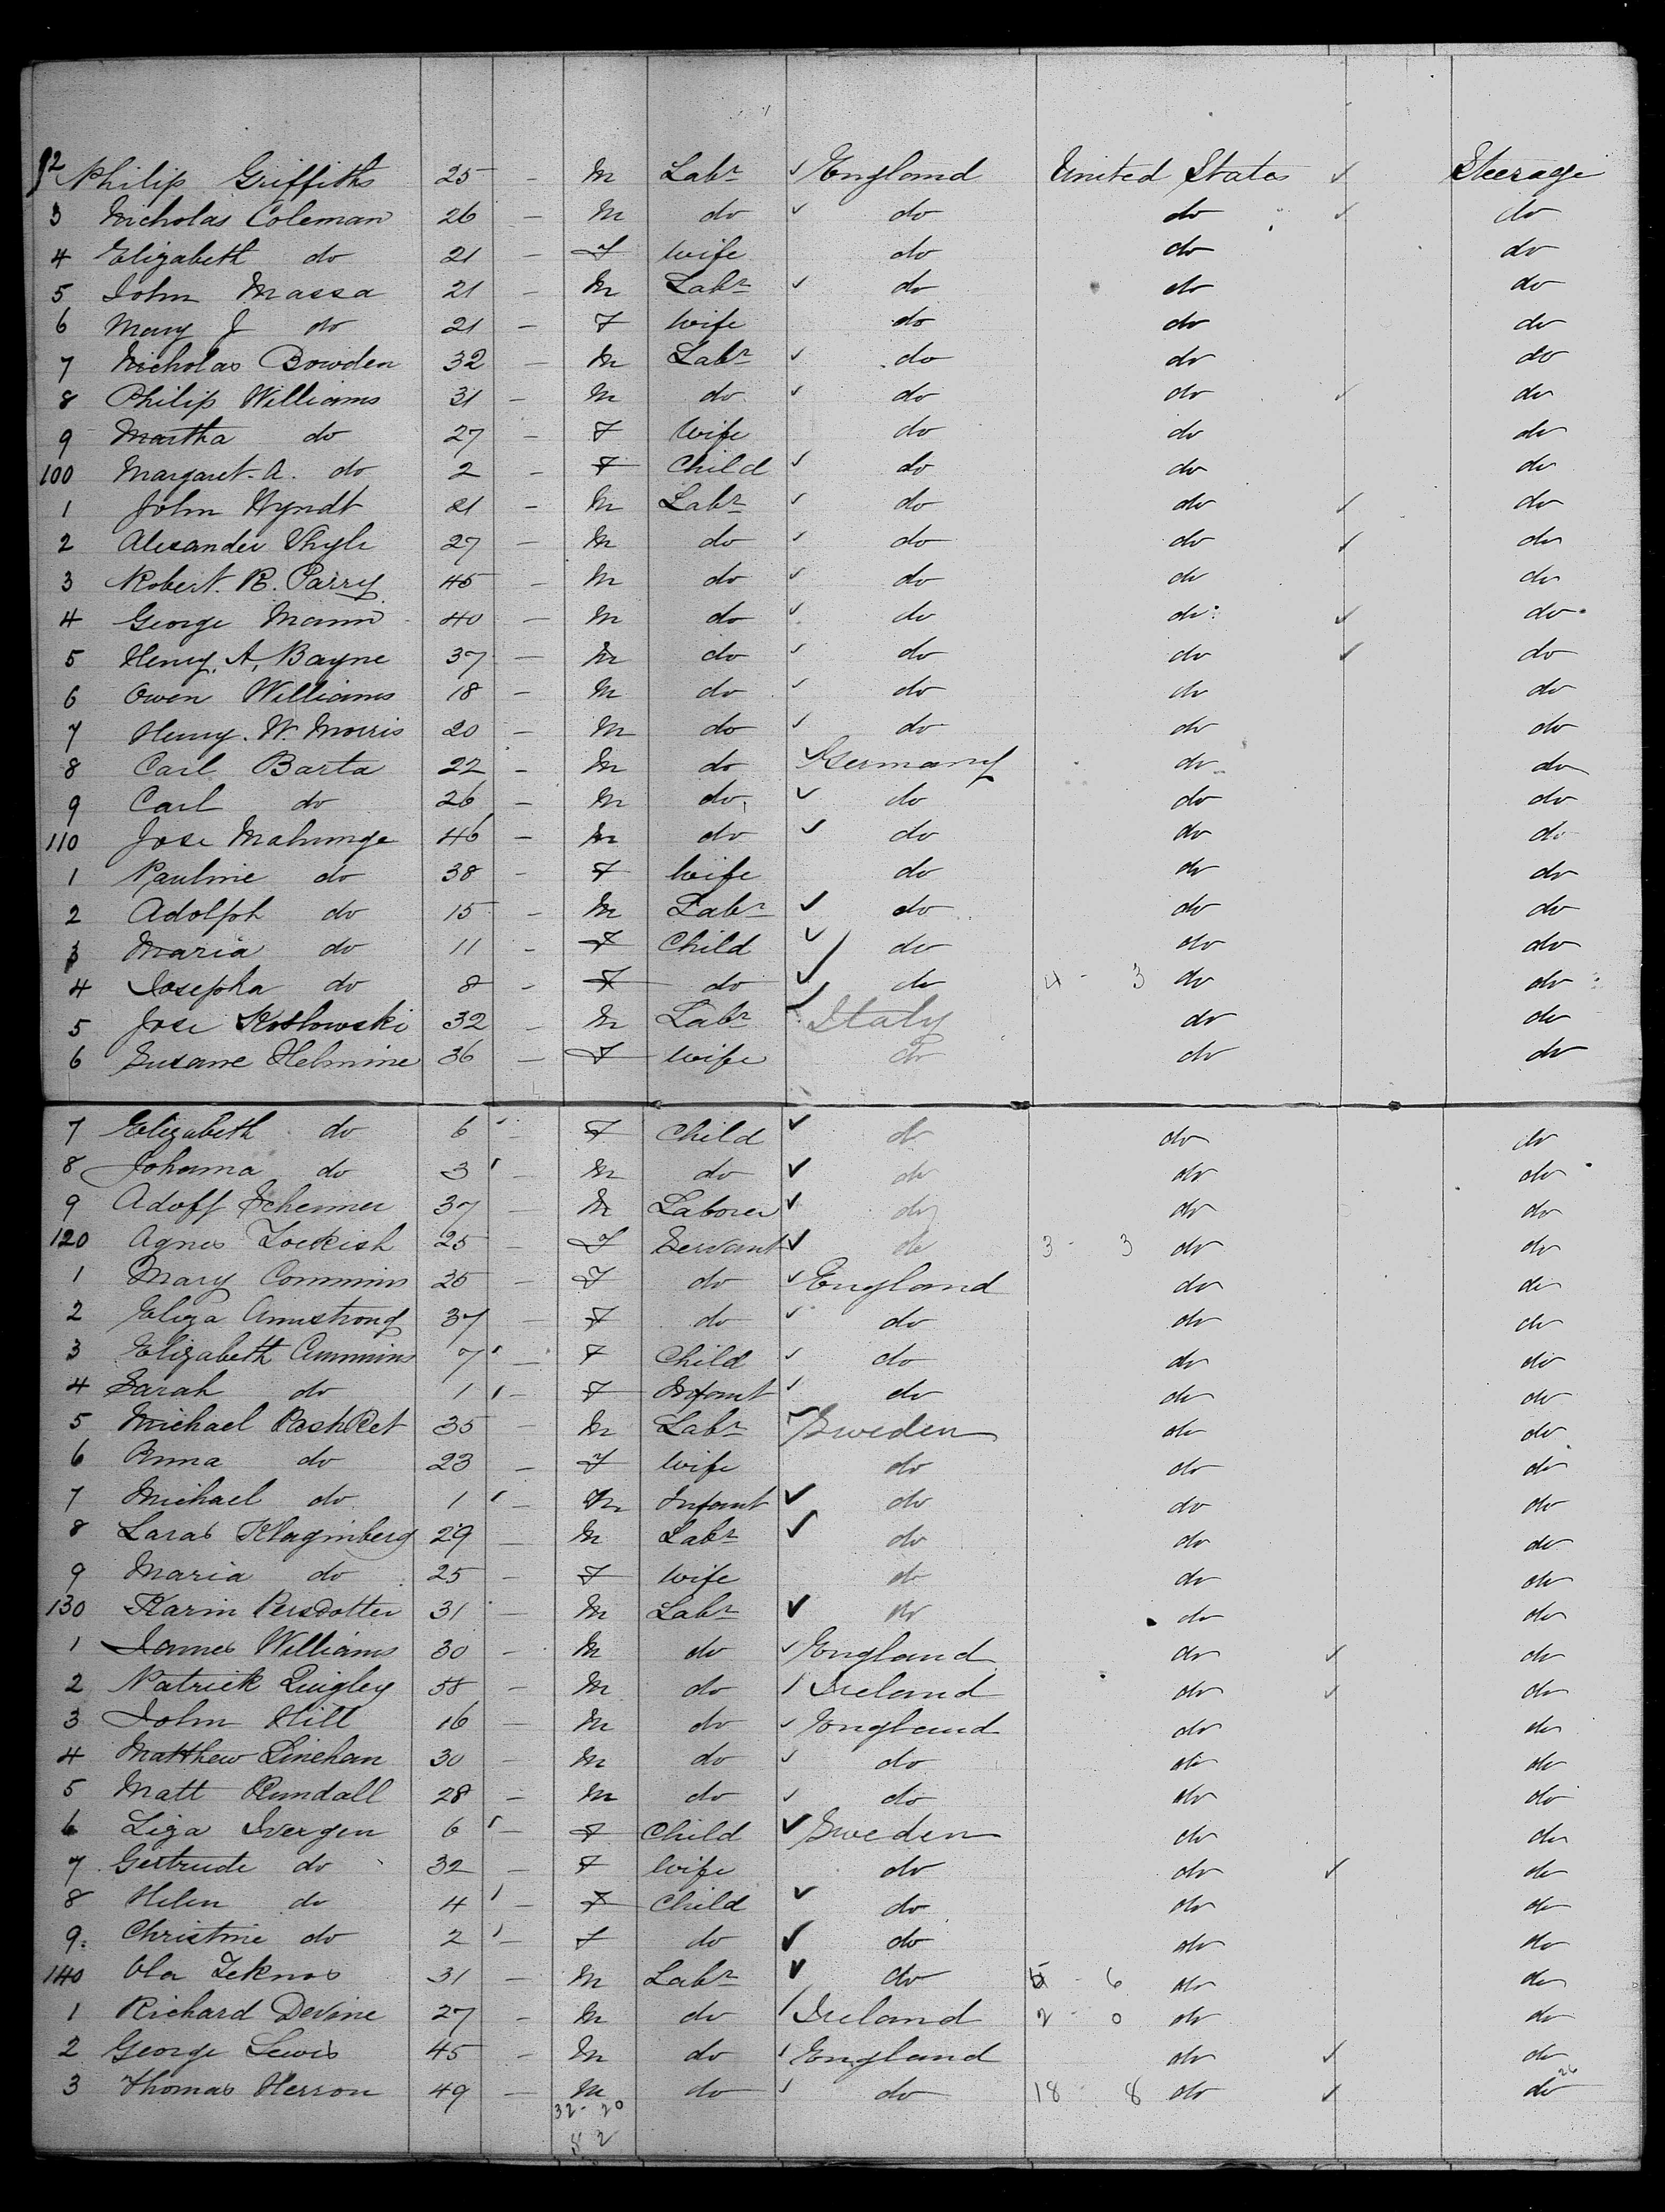 92 Philip Griffiths 25 - M Labr ✓ England United States ✓ Steerage
3 Nicholas Coleman 26 - M do ✓ do do ✓ do
4 Elizabeth do 21 - F wife do do do
5 John Massa 21 - M Labr ✓ do do do
6 Mary J do 21 - F wife do do do
7 Nicholas Bowden 32 - M Labr ✓ do do do
8 Philip Williams 31 - M do ✓ do do ✓ do
9 Martha do 27 - F Wife do do do
100 Margaret. A. do 2 - F Child ✓ do do do
1 John Hyndt 21 - M Labr ✓ do do ✓ do
2 Alexander 27 - M do ✓ do do ✓ do
3 Robert. R. Parry 45 - M do ✓ do do do
4 George Mann 40 - M do ✓ do do ✓ do
5 Henry. A, Bayne 37 - M do ✓ do do ✓ do
6 Owen Williams 18 - M do ✓ do do do
7 Henry. W. Morris 20 - M do ✓ do do do
8 Carl Barta 22 - M do ✓ Germany do do
9 Carl do 26 - M do ✓ do do do
110 Jose 46 - M do ✓ do do do
1 Pauline do 38 - F wife do do do
2 Adolph do 15 - M Labr ✓ do do do
3 Maria do 11 - F Child ✓ do do do
4 Josepha do 8 - F do ✓ do 4 - 3 do do
5 Jose Kotlowski 32 - M Labr ✓ Italy do do
6 Susane Helmine 36 - F wife do do do
7 Elizabeth do 6 - F Child ✓ do do do
8 Johanna do 3 - M do ✓ do do do
9 Adoff 37 - M Laborer ✓ do do do
120 Agnes 25 - F Servant ✓ do 3 - 3 do do
1 Mary Commins 25 - F do ✓ England do do
2 Eliza Armstrong 37 - F do ✓ do do do
3 Elizabeth Cummins 7 - F Child ✓ do do do
4 Sarah do 1 - F Infant ✓ do do do
5 Michael 35 - M Labr ✓ Sweden do do
6 Anna do 23 - F wife do do do
7 Michael do 1 - M Infant ✓ do do do
8 Laras Klaginberg 29 - M Labr ✓ do do do
9 Maria do 25 - F wife do do do
130 Karin Persdotter 31 - M Labr ✓ do do do
1 James Williams 30 - M do ✓ England do ✓ do
2 Patrick Quigley 58 - M do / Ireland do ✓ do
3 John Hill 16 - M do ✓ England do do
4 Matthew Linehan 30 - M do ✓ do do do
5 Matt Rundall 28 - M do ✓ do do do
6 Liza Ivergen 6 - F Child ✓ Sweden do do
7 Gertrude do 32 - F wife do do ✓ do
8 Helen do 4 - F Child ✓ do do do
9 Christine do 2 - F do ✓ do do do
140 Ola Zeknos 31 - M Labr ✓ do 5 - 6 do do
1 Richard Devine 27 - M do / Ireland 2 - 0 do do
2 George Lewis 45 - M do / England do ✓ do
3 Thomas Herron 49 - M do ✓ do 18 - 8 do ✓ do 26
32 - 20
52